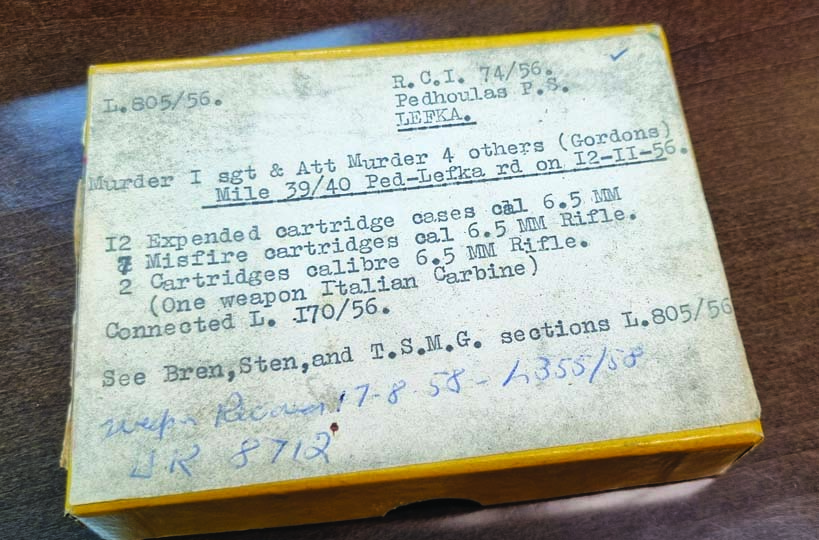 L.805/56.
R.C.I. 74/56.
Pedhoulas P.S.
LEFKA.
Murder I sgt & Att Murder 4 others (Gordons)
Mile 39/40 Ped-Lefka rd on I2-II-56.
I2 Expended cartridge cases cal 6.5 MM
7 Misfire cartridges cal 6.5 MM Rifle.
2 Cartridges calibre 6.5 MM Rifle.
(One weapon Italian Carbine)
Connected L. I70/56.
See Bren,Sten,and T.S.M.G. sections L.805/56
17-8-58 - L355/58
8712